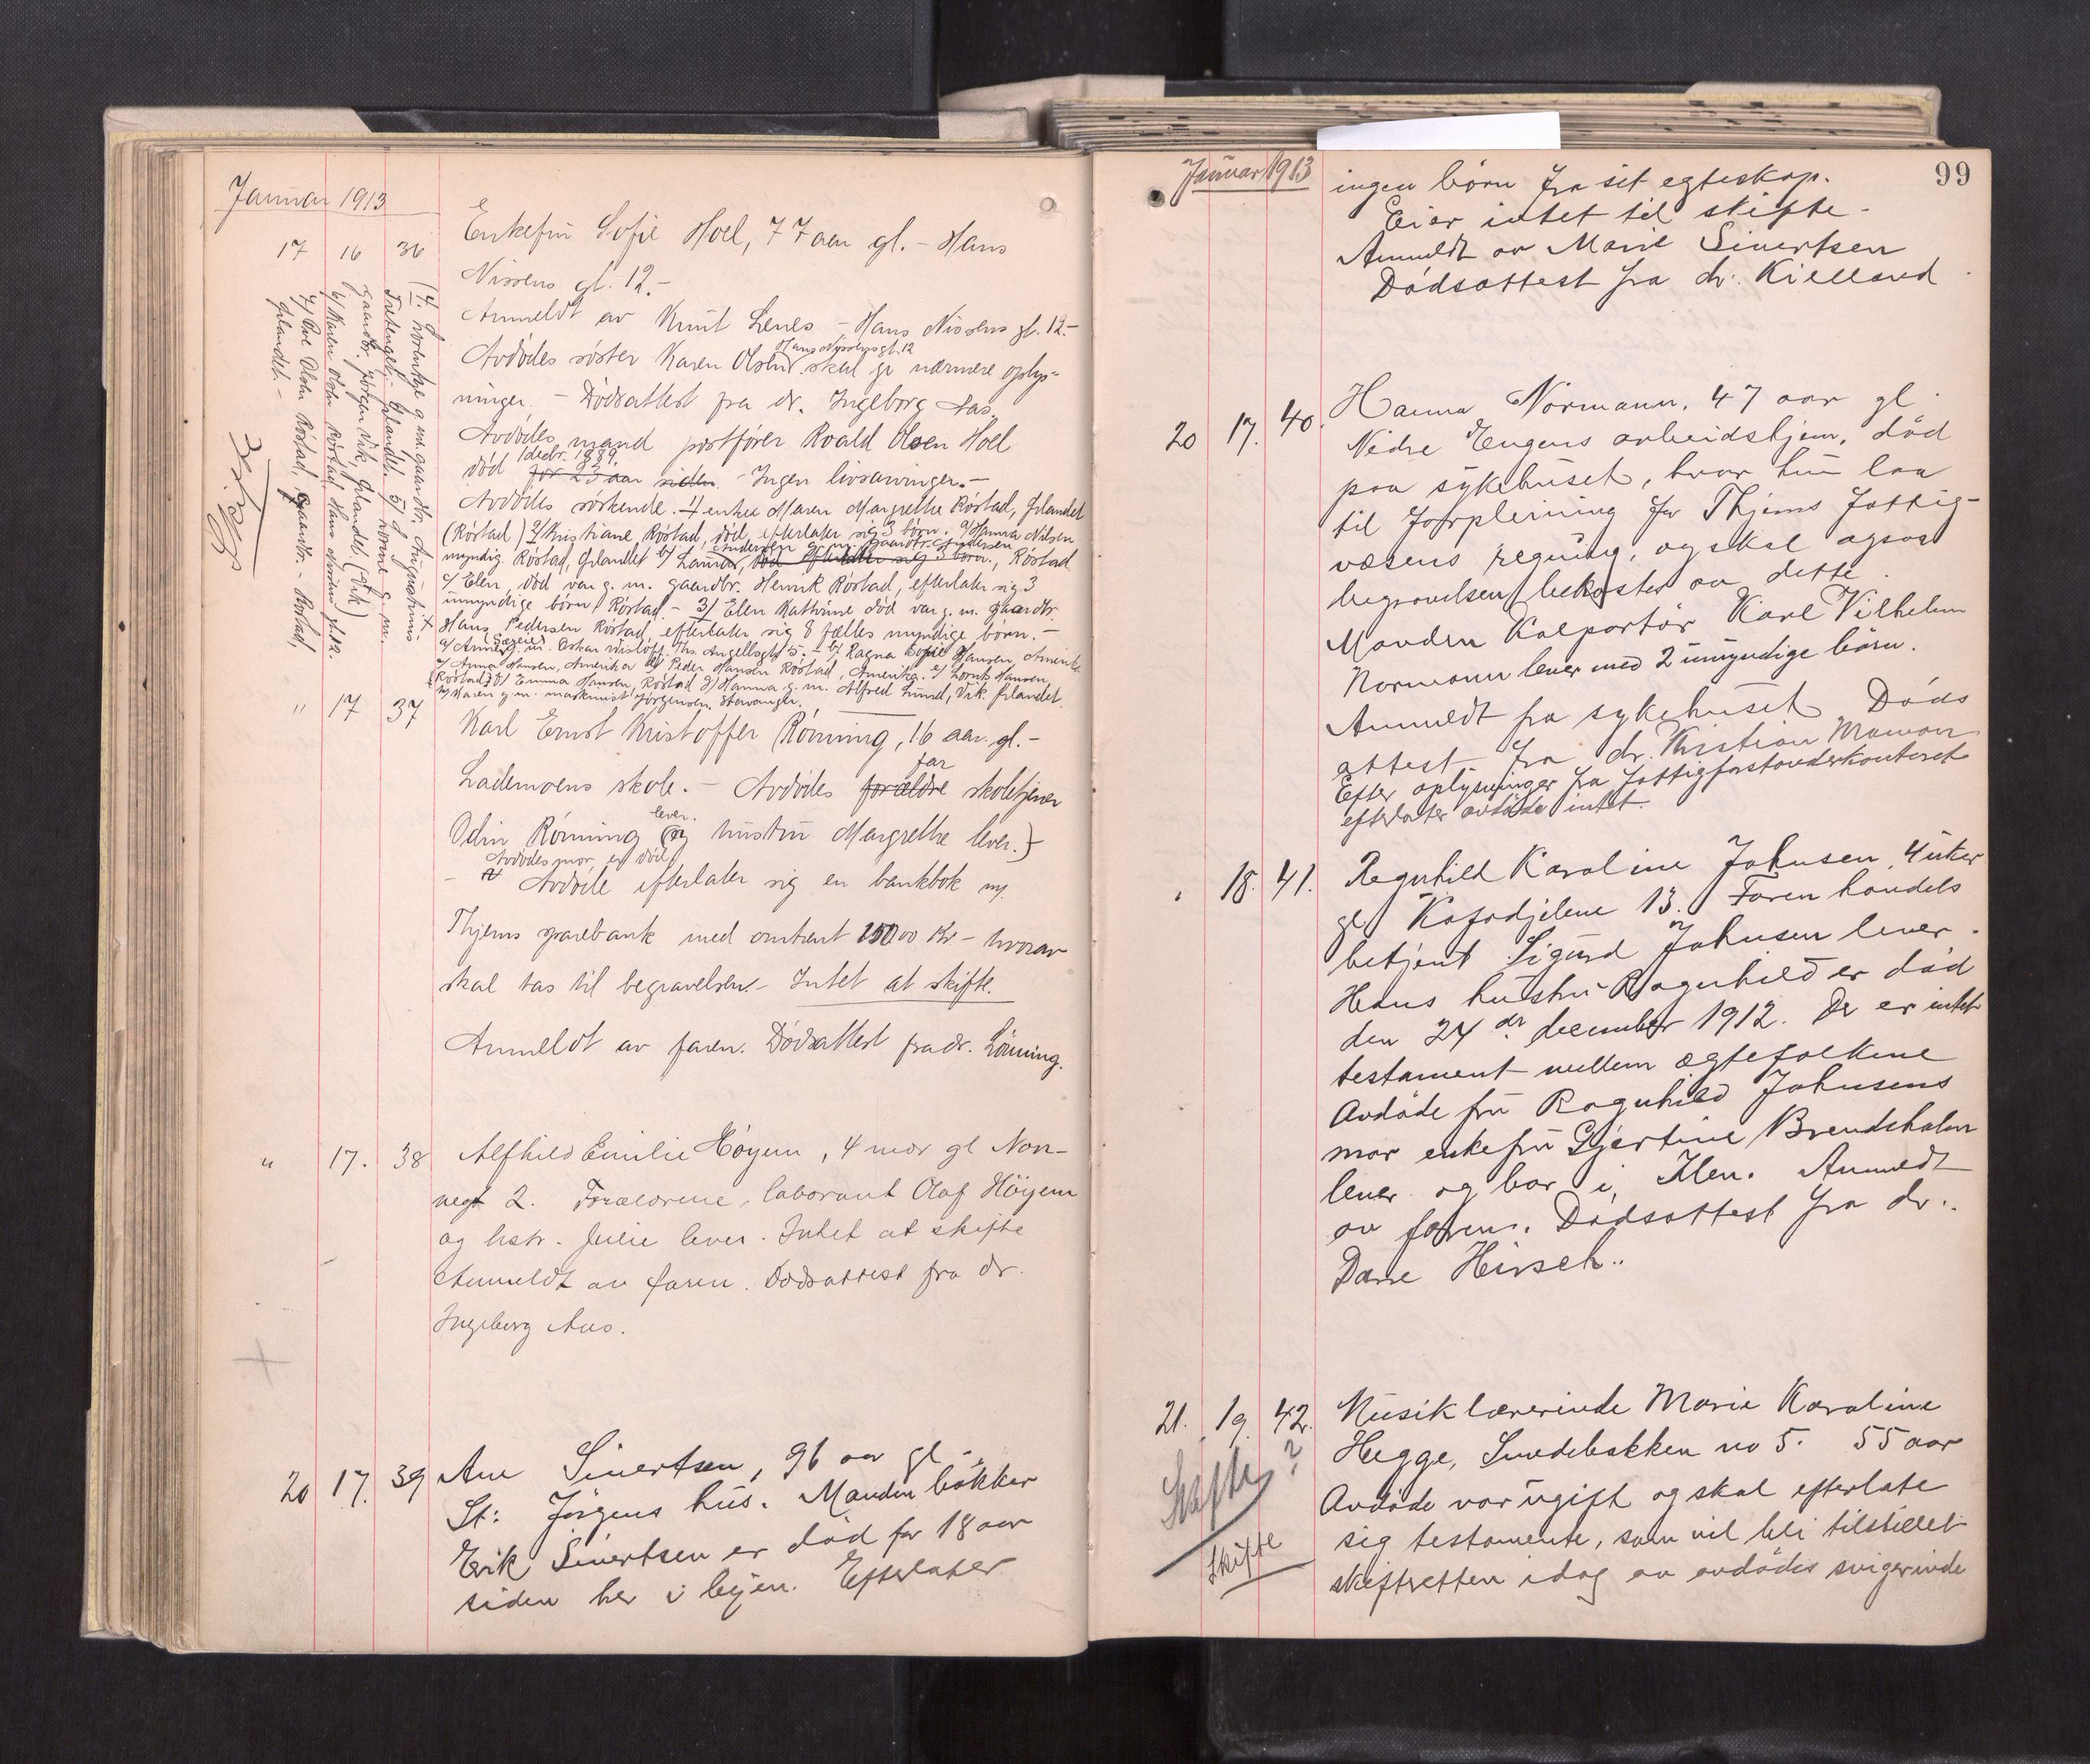 Januar 1913
17 16 36 Enkefru Sofie Hoel, 77 aar gl. - Hans
Nissens gt. 12.-
Anmeldt av Knut Lenes - Hans Nissens gt. 12.-
Avdødes søster Karen Olsen Hans Nissensgt. 12 skal gi nærmere oplys-
ninger. - Dødsattest fra dr. Ingeborg Aas.
Avdødes mand postfører Roald Olsen Hoel
død decbr. 1889. for 23 aar siden - Ingen livsarvinger.-
Avdødes søskende. 1/ enke Maren Margrethe Røstad, Ørlandet
(Røstad) 2/ Kristiane Røstad, død, efterlater sig 3 børn: a/ Hanna Nilsen
myndig. Røstad, Ørlandet b/ Laura, Andersen g. m. gaardbr. Andersen død efterlater sig 3 børn, Røstad
c/ Elen, død var g. m. gaardbr. Henrik Røstad, efterlater sig 3
umyndige børn Røstad - 3/ Elen Kathrine død var g. m. gaardbr.
Hans Pedersen Røstad, efterlater sig 8 fælles myndige børn. -
a/ Anna g. m. Oskar Th. Angellsgt 5. - b/ Ragna Hansen, Amerika
c/ Anna Hansen, Amerika d/ Peder Hansen Røstad, Amerika. e/ Hansen
(Røstad) f/ Emma Hansen, Røstad g/ Hanna g. m. Alfred Lund, Vik. Ørlandet.
h/ Karen g. m. maskinist Jørgensen. Stavanger.
(4. g. m. gaardbr. Augustinus
Ørlandet. 5/
gaardbr. Jørgen Vik, Ørlandet (Vik)
6/ Karen Olsen Røstad Hans Nissens gt. 12.
7/ Ole Olsen Røstad, gaardbr. - Røstad,
Ørlandet. -
" 17 37 Karl Ernst Kristoffer Rønning, 16 aar. gl. -
Lademoens skole. - Avdødes forældre far skoletjener
Odin Rønning lever. (og hustru Margrethe lever.)
Avdødes mor er død
- Avdøde efterlater sig en bankbok m/
Thjems sparebank med omtrent 15000 Kr - hvorav
skal tas til begravelsen. - Intet at skifte.
Anmeldt av faren. Dødsattest fra dr. Lønning.
" 17. 38 Alfhild Emilie Høyem, 4 mdr gl Non-
negt 2. Forældrene, laborant Olaf Höyem
og hstr. Julie lever. Intet at skifte
Anmeldt av faren. Dødsattest fra dr.
Ingeborg Aas.
20 17. 39 Ane Sivertsen, 96 aar gl
St: Jørgens hus. Manden bøkker
Erik Sivertsen er død for 18 aar
siden her i byen. Efterlater
Januar 1913
99
ingen børn fra sit egteskap.
Eier intet til skifte.
Anmeldt av Marie Sivertsen
Dødsattest fra dr. Kielland
20 17. 40. Hanna Normann, 47 aar gl.
Nedre Engens arbeidshjem, död
paa sykehuset, hvor hun laa
til forpleining for Thjems fattig-
væsens regning, og skal ogsaa
begravelsen bekostes av dette.
Manden Kolportør Karl Vilhelm
Normann lever med 2 umyndige børn.
Anmeldt fra sykehuset Døds
attest fra dr. Kristian
Efter oplysninger fra fattigforstanderkontoret
efterlater avdøde intet.
" 18. 41. Ragnhild Karoline Johnsen, 4 uker
gl Kafadjelene 13. Faren handels
betjent Sigurd Johnsen lever.
Hans hustru Ragnhild er død
den 24 de december 1912. Der er intet
testament mellem ægtefolkene
Avdøde fru Ragnhild Johnsens
mor enkefru Gjertine Brendsholm
lever og bor i Ilen. Anmeldt
av faren. Dødsattest fra dr..
Daae Hirsch..
21. 19. 42. Musiklærerinde Marie Karoline
Hegge, Smedbakken no 5. 55 aar
Avdøde var ugift og skal efterlate
sig testamente, som vil bli tilstillet
skifteretten idag av avdødes svigerinde
Skifte ?
Skifte